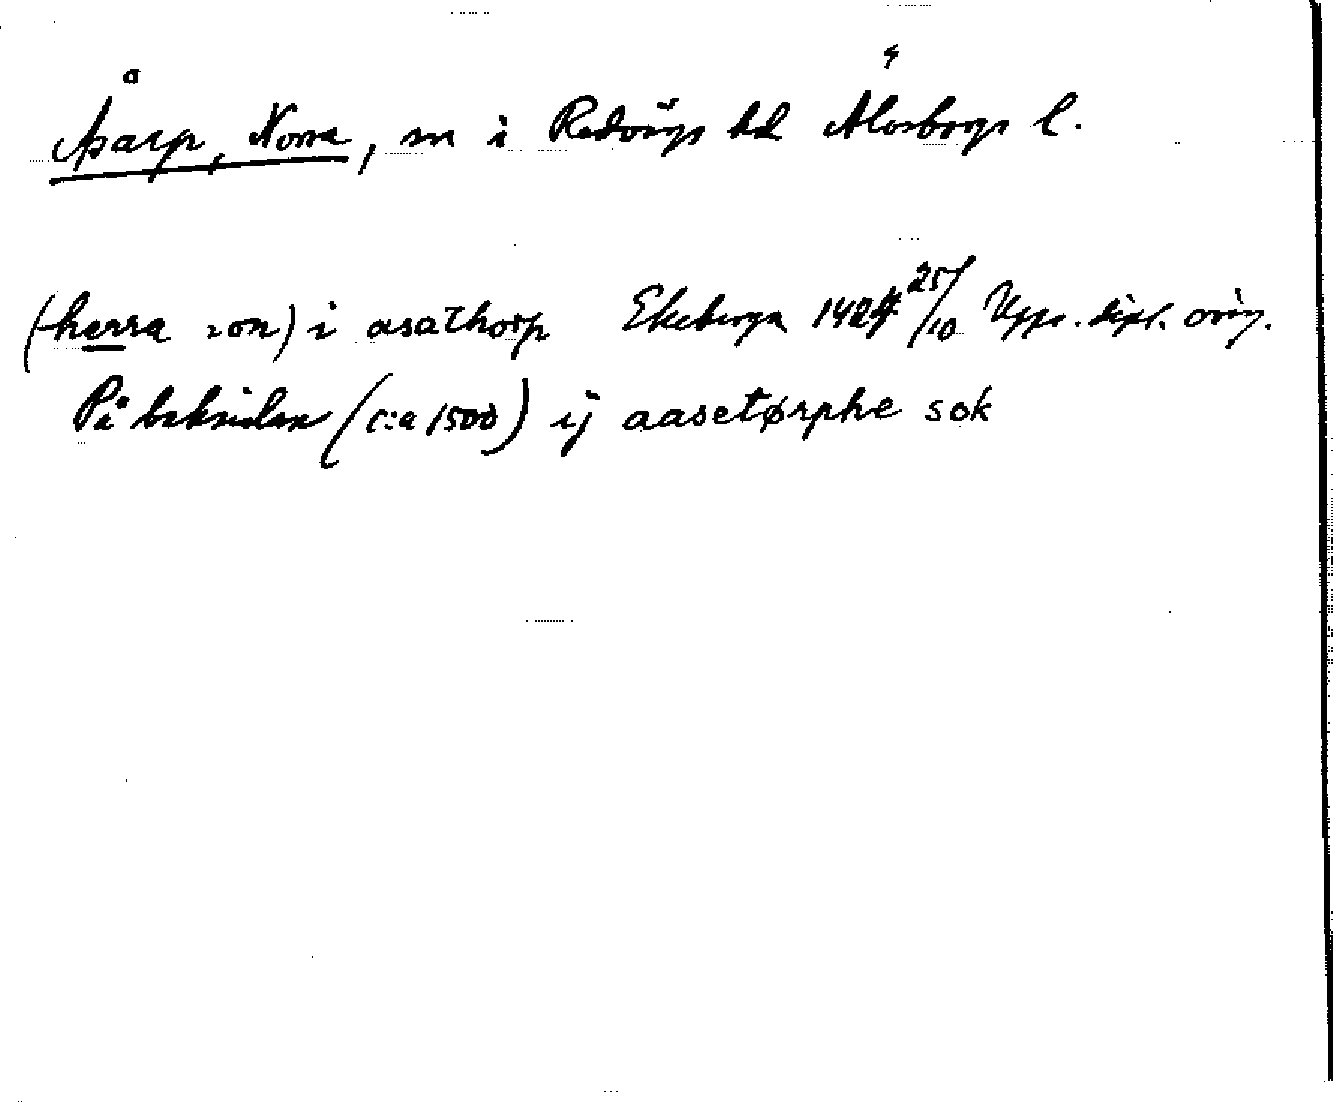 Åsarp, Norra, sn i Redvägs hd Älvsborgs l.
(herra ion) i asathorp Ekeberga 1424 25/10 Upps. dipl. orig.
På baksidan (c:a 1500) ij aasetørphe sok